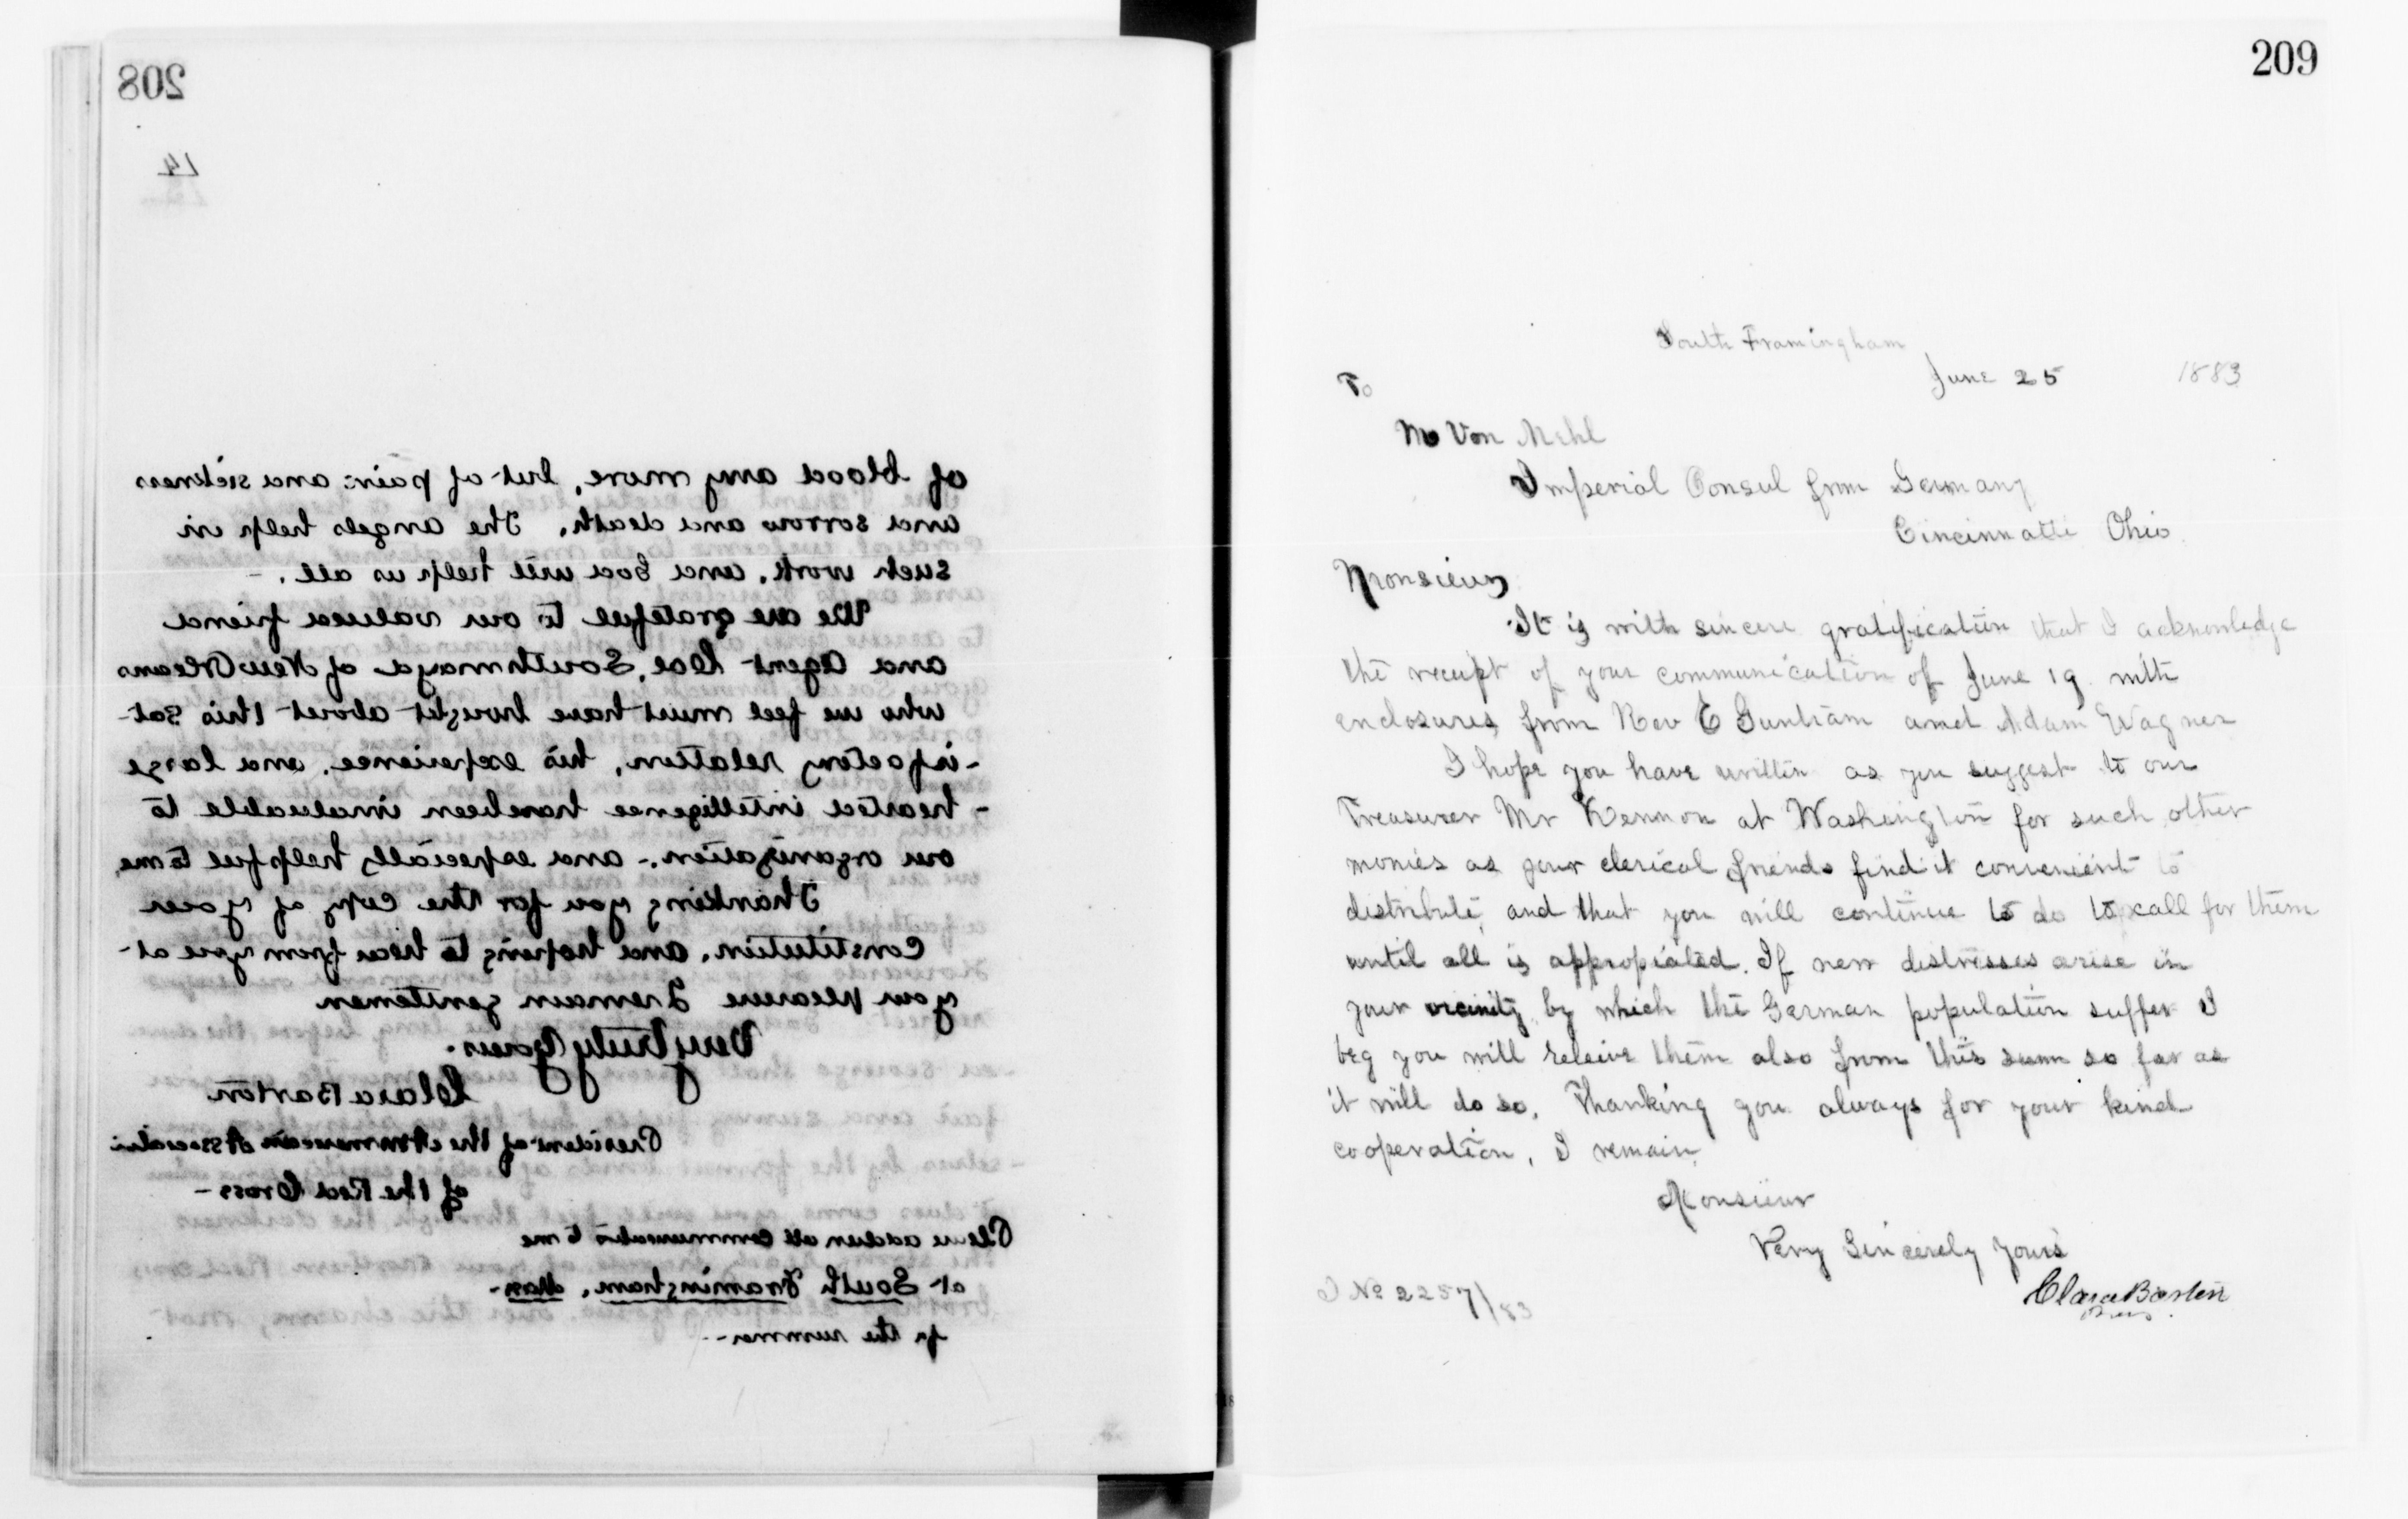 208
L4
of blood any more, but of pain and sickness
and sorrow and death. The angels help in
such work, and God will help us all. -
We are grateful to our valued friend
and agent Col. Southmayd of New Orleans
who we feel must have brought about this sat-
-isfactory relation, his experience, and large
-hearted intelligence have been invaluable to
our organization. - and especially helpful to me.
Thanking you for the copy of your
Constitution, and hoping to hear from you at
your pleasure I remain gentlemen
Very truly Yours.
Clara Barton
President of the American Associatn
of the Red Cross -
Please address all communicatns to me
at South Framingham, Mass -
for the summer - -
209
South Framingham
June 25 1883
To
Mr Von Mehl
Imperial Consul from Germany
Cincinnatti Ohio
Monsieur
It is with sincere gratification that I acknowledge
the receipt of your communication of June 19 with
enclosures from Rev C Guntram and Adam Wagner
I hope you have written as you suggest to our
Treasurer Mr Kennon at Washington for such other
monies as your clerical friends find it convenient to
distribute, and that you will continue to do to call for them
until all is appropiated. If new distresses arise in
your vicinity by which the German population suffer I
beg you will releive them also from this sum so far as
it will do so. Thanking you always for your kind
cooperation, I remain
Monsieur
Very Sincerely yours
Clara Barton
Pres.
J No 2257/83